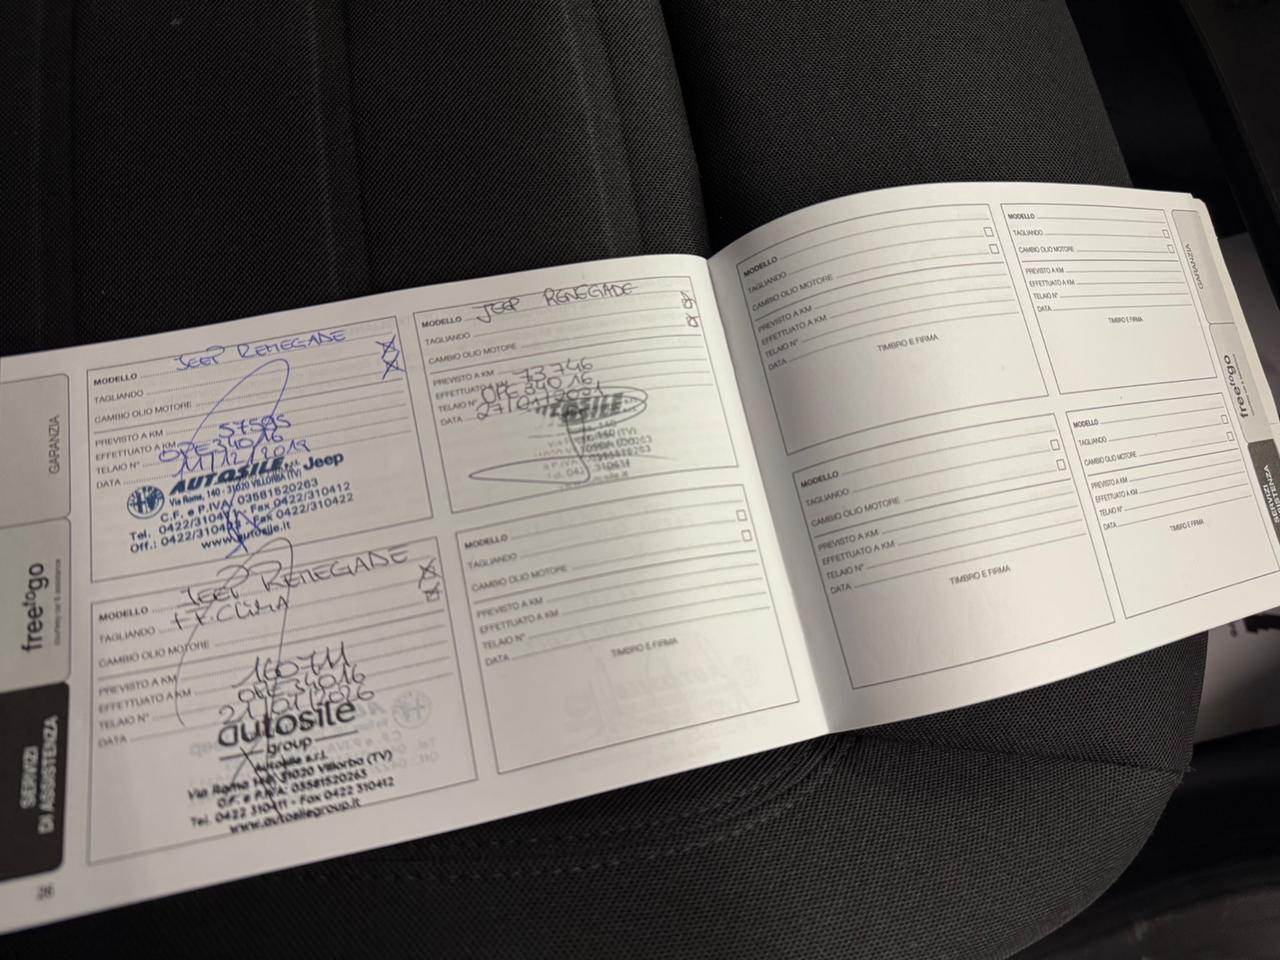 GARANZIA
freetogo
SERVIZI
DI ASSISTENZA
26
MODELLO JEEP RENEGADE
TAGLIANDO
CAMBIO OLIO MOTORE
PREVISTO A KM
EFFETTUATO A KM 57595
TELAIO N° OPE34016
DATA 11/12/2019
AUTOSILE s.r.l. Jeep
Via Roma, 140 - 31020 VILLORBA (TV)
C.F. e P.IVA: 03581520263
Tel. 0422/310411 - Fax 0422/310412
Off.: 0422/310 - Fax 0422/310422
www.autosile.it
MODELLO JEEP RENEGADE
TAGLIANDO
CAMBIO OLIO MOTORE
PREVISTO A KM
EFFETTUATO A KM 73746
TELAIO N° OPE34016
DATA 27/01/2021
MODELLO JEEP RENEGADE
TAGLIANDO + F. CLIMA
CAMBIO OLIO MOTORE
PREVISTO A KM
EFFETTUATO A KM 160711
TELAIO N° OPE34016
DATA 21/01/2026
autosile
group
Autosile s.r.l.
Via Roma 140 31020 Villorba (TV)
C.F. e P.IVA: 03581520263
Tel. 0422 310411 - Fax 0422 310412
www.autosilegroup.it
MODELLO
TAGLIANDO
CAMBIO OLIO MOTORE
PREVISTO A KM
EFFETTUATO A KM
TELAIO N°
DATA
TIMBRO E FIRMA
MODELLO
TAGLIANDO
CAMBIO OLIO MOTORE
PREVISTO A KM
EFFETTUATO A KM
TELAIO N°
DATA
TIMBRO E FIRMA
MODELLO
TAGLIANDO
CAMBIO OLIO MOTORE
PREVISTO A KM
EFFETTUATO A KM
TELAIO N°
DATA
TIMBRO E FIRMA
MODELLO
TAGLIANDO
CAMBIO OLIO MOTORE
PREVISTO A KM
EFFETTUATO A KM
TELAIO N°
DATA
TIMBRO E FIRMA
MODELLO
TAGLIANDO
CAMBIO OLIO MOTORE
PREVISTO A KM
EFFETTUATO A KM
TELAIO N°
DATA
TIMBRO E FIRMA
GARANZIA
freetogo
SERVIZI